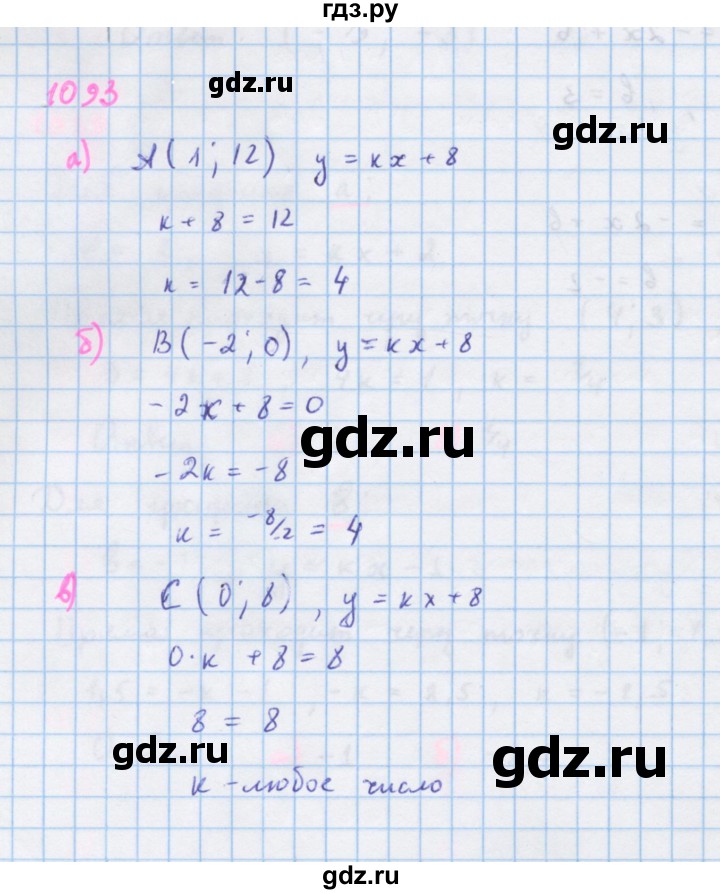 гдз.ру
gdz.ru
1093
gdz.ru
а) A(1; 12) y = кx + 8
к + 8 = 12
к = 12 - 8 = 4
б) B(-2; 0), y = кx + 8
-2к + 8 = 0
gdz.ru
-2к = -8
к = -8/-2 = 4
в) C(0; 8), y = кx + 8
0·к + 8 = 8
8 = 8
gdz.ru
gdz.ru
к - любое число
gdz.ru